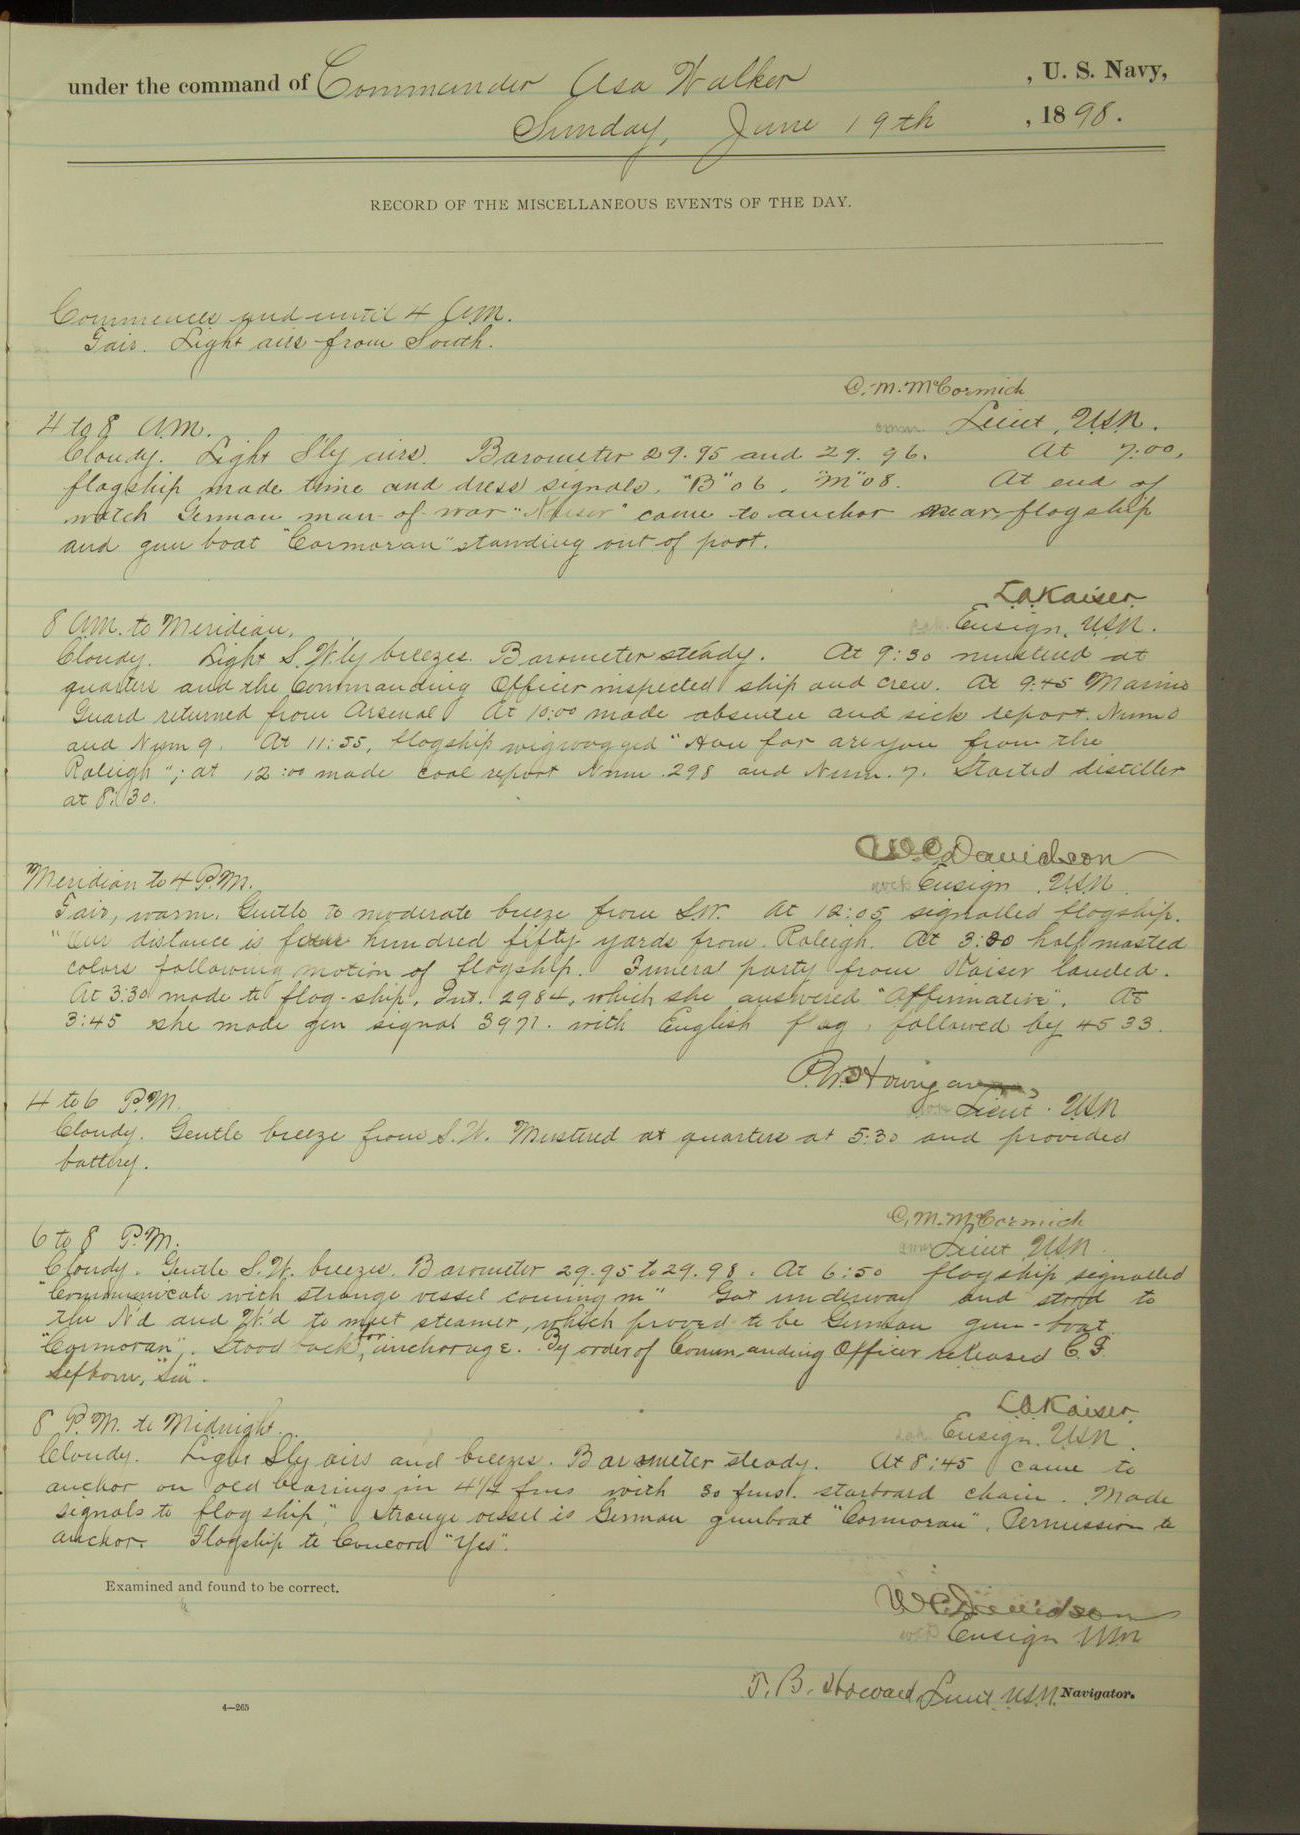 under the command of Commander Asa Walker , U. S. Navy,
Sunday, June 19th , 1898.
RECORD OF THE MISCELLANEOUS EVENTS OF THE DAY.
Commences and until 4 A.M.
Fair. Light airs from South.
C. M. McCormick
Lieut, U.S.N.
4 to 8 A.M.
Cloudy. Light S'ly airs. Barometer 29.95 and 29.96. At 7:00,
flagship made time and dress signals, "B" 06, "M" 08. At end of
watch German man-of-war "Kaiser" came to anchor near flagship
and gun boat "Cormoran" standing out of port.
L.A. Kaiser
Ensign, U.S.N.
8 A.M. to Meridian.
Cloudy. Light S.W'ly breezes. Barometer steady. At 9:30 mustered at
quarters and the Commanding Officer inspected ship and crew. At 9:45 Marine
Guard returned from Arsenal. At 10:00 made absentee and sick report. Num 0
and Num 9. At 11:55, flagship wigwagged "How far are you from the
Raleigh"; at 12:00 made coal report Num. 298 and Num. 7. Started distiller
at 8:30.
W.C. Davidson
Ensign U.S.N.
Meridian to 4 P.M.
Fair, warm. Gentle to moderate breeze from SW. At 12:05 signalled flagship.
"Our distance is four hundred fifty yards from Raleigh. At 3:20 half masted
colors following motion of flagship. Funeral party from Kaiser landed.
At 3:30 made to flag-ship, Int. 2984, which she answered "Affirmative". At
3:45 she made gen signal 3971. with English flag, followed by 4533.
P.W. Hourigan
Lieut. USN
4 to 6 P.M.
Cloudy. Gentle breeze from S.W. Mustered at quarters at 5:30 and provided
battery.
C. M. McCormick
Lieut USN.
6 to 8 P.M.
Cloudy. Gentle S.W. breezes. Barometer 29.95 to 29.98. At 6:50 flagship signalled
"Communicate with strange vessel coming in" Got underway and stood to
the N'd and W'd to meet steamer, which proved to be German gun-boat
"Cormoran". Stood back for anchorage. By order of Commanding Officer released C. F.
"Sea".
L.A. Kaiser.
Ensign. USN.
8 P.M. to Midnight.
Cloudy. Light S'ly airs and breezes. Barometer steady. At 8:45 came to
anchor on old bearings in 4½ fms with 30 fms. starboard chain. Made
signals to flag ship, "Strange vessel is German gunboat "Cormoran". Permission to
anchor. Flagship to Concord "Yes".
Examined and found to be correct.
W.C. Davidson
Ensign USN
T. B. Howard Lieut. U.S.N. Navigator.
4—265